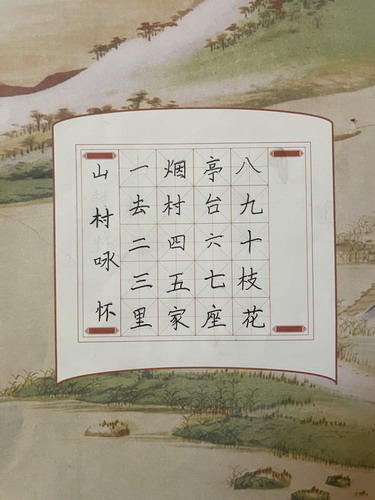 山村咏怀
一去二三里
烟村四五家
亭台六七座
八九十枝花